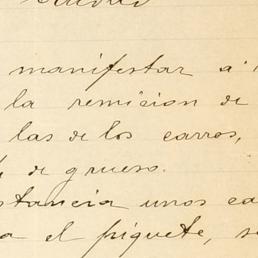 manifestar á
la remision de
las de los carros,
de grueso.
stancia unos ca
a el piquete, se